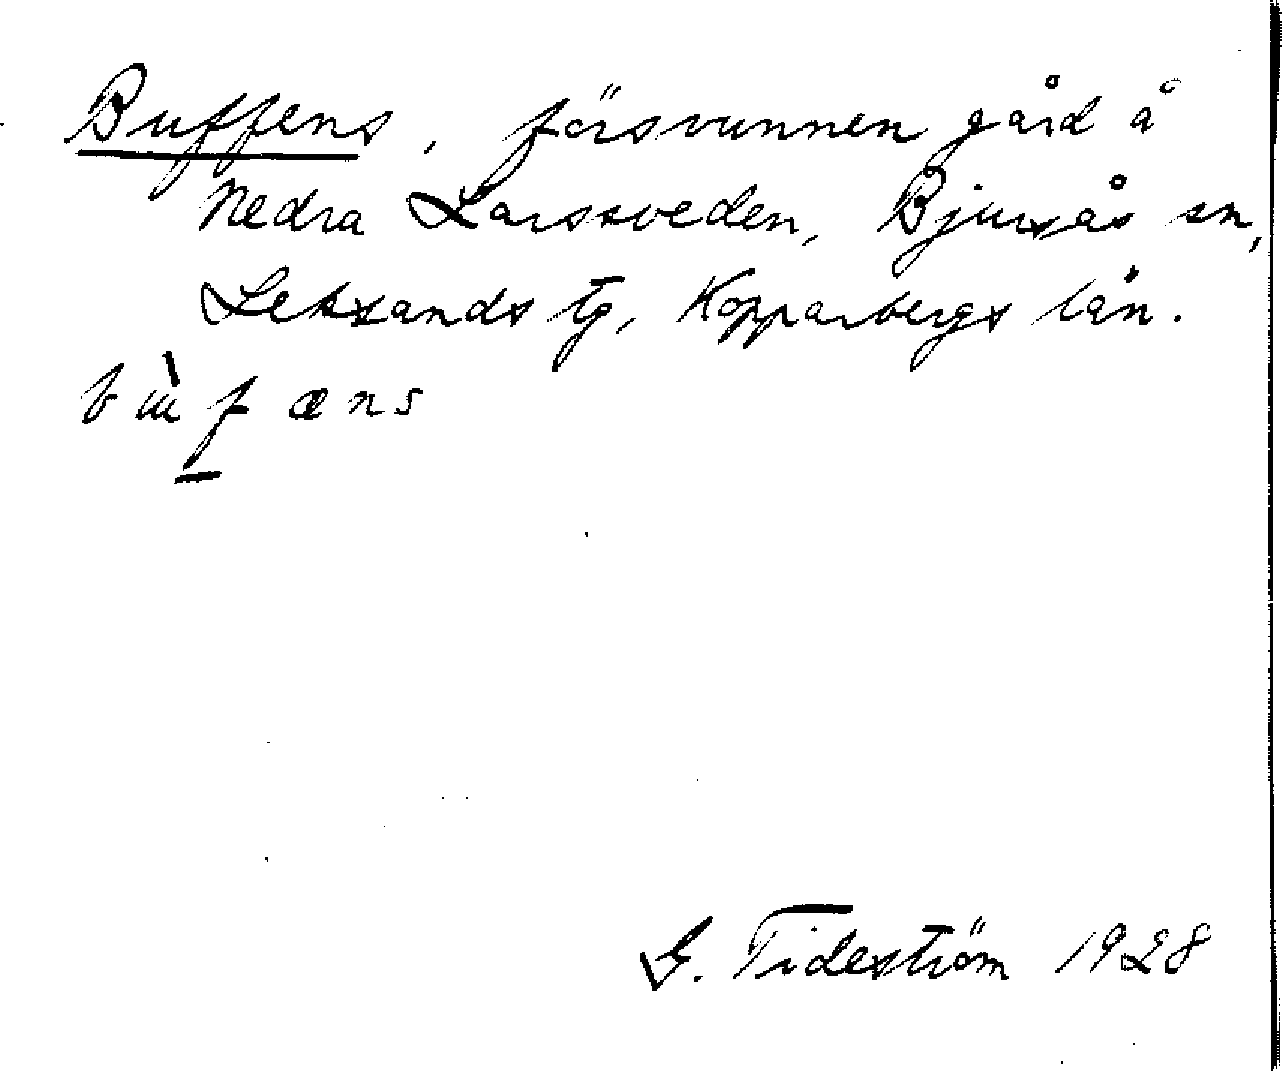 Buffens, försvunnen gård å
Nedra Larssveden, Bjursås sn,
Leksands tg, Kopparbergs län.
bɯ̀f̠æns
G. Tideström 1928